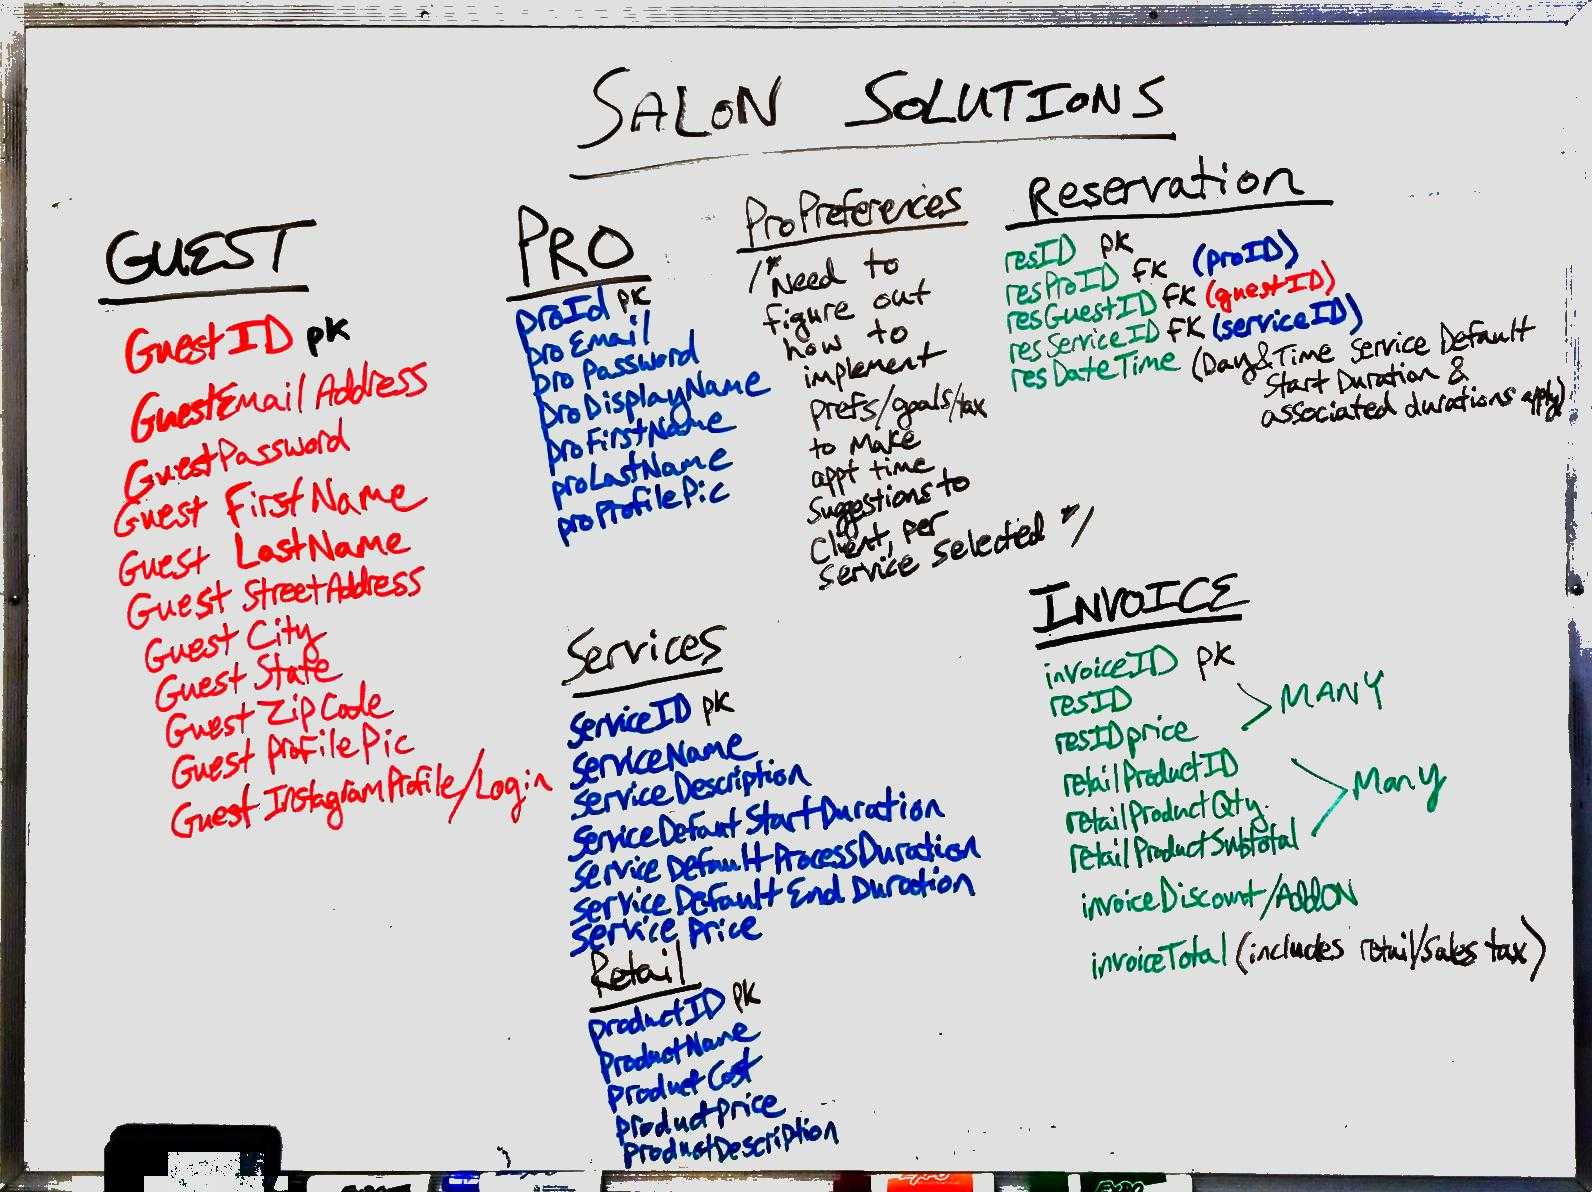 SALON SOLUTIONS
GUEST
GuestID pk
GuestEmail Address
GuestPassword
Guest FirstName
Guest LastName
Guest StreetAddress
Guest City
Guest State
Guest ZipCode
Guest ProfilePic
Guest InstagramProfile/Login
PRO
proId pk
proEmail
proPassword
proDisplayName
proFirstName
proLastName
proProfilePic
ProPreferences
/*Need to
figure out
how to
implement
prefs/goals/tax
to make
appt time
suggestions to
client, per
service selected */
Reservation
resID pk
resProID FK (proID)
resGuestID FK (guestID)
resServiceID FK (serviceID)
resDateTime (Day&Time Service Default
Start Duration &
associated durations apply)
Services
serviceID pk
serviceName
serviceDescription
serviceDefaut StartDuration
service Default ProcessDuration
service Default End Duration
service Price
Retail
productID pk
productName
productCost
productPrice
productDescription
INVOICE
invoiceID pk
resID
resIDprice
MANY
retailProductID
retailProductQty.
retailProductSubtotal
Many
invoiceDiscount/AddON
invoiceTotal (includes retail/sales tax)